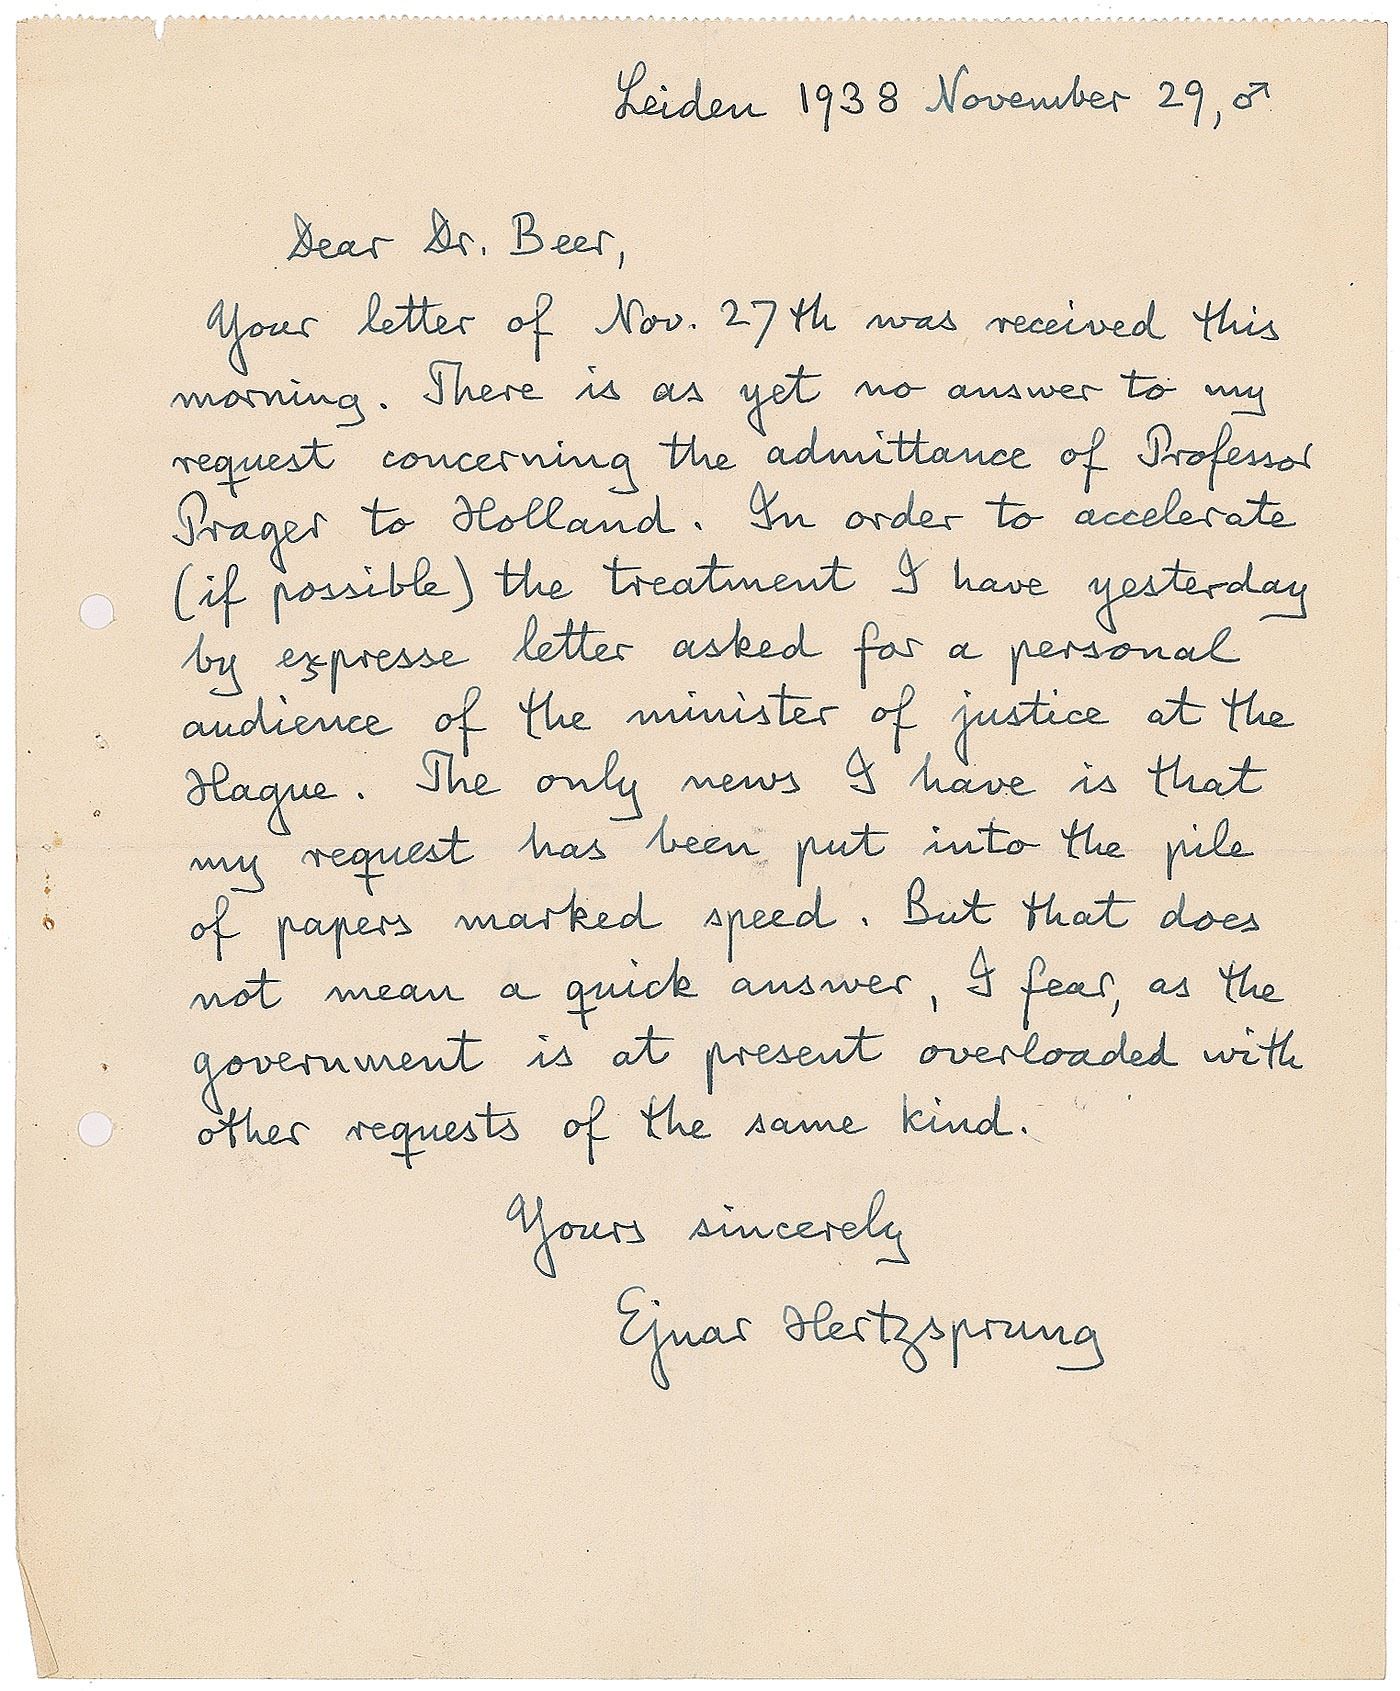 Leiden 1938 November 29, ♂
Dear Dr. Beer,
Your letter of Nov. 27th was received this
morning. There is as yet no answer to my
request concerning the admittance of Professor
Prager to Holland. In order to accelerate
(if possible) the treatment I have yesterday
by expresse letter asked for a personal
audience of the minister of justice at the
Hague. The only news I have is that
my request has been put into the pile
of papers marked speed. But that does
not mean a quick answer, I fear, as the
government is at present overloaded with
other requests of the same kind.
Yours sincerely
Ejnar Hertzsprung